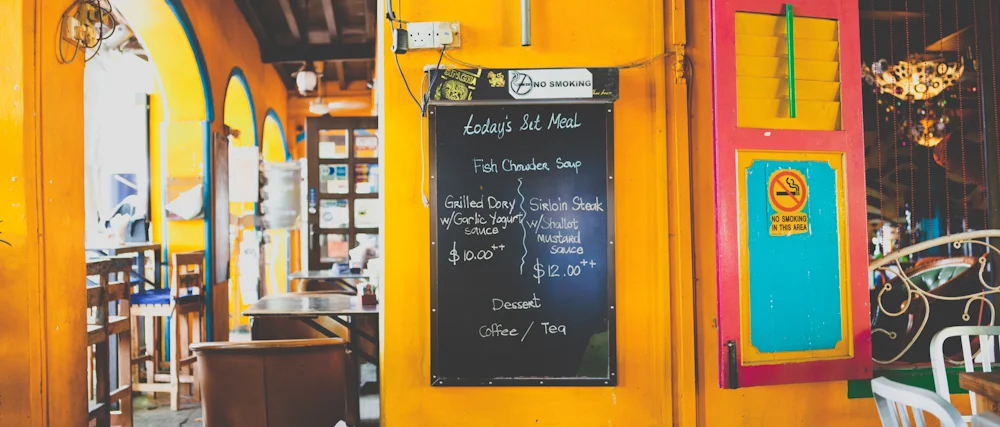 NO SMOKING
today's Set Meal
Fish Chowder Soup
Grilled Dory
w/Garlic Yogurt
sauce
$10.00++
Sirloin Steak
w/Shallot
mustard
sauce
$12.00++
Dessert
Coffee / Tea
NO SMOKING
IN THIS AREA